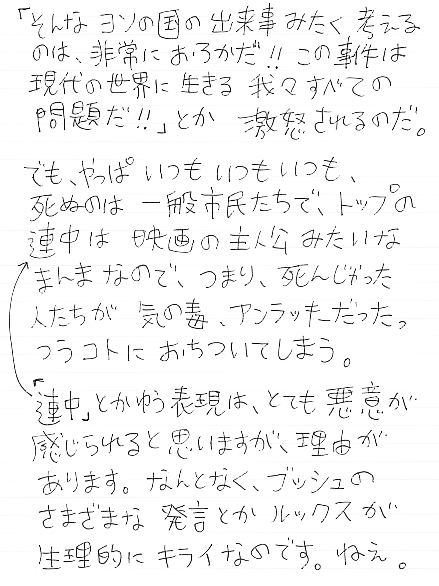 「そんな ヨソの国の 出来事 みたく 考える
のは、非常に おろかだ!! この事件は
現代の世界に 生きる 我々すべての
問題だ!!」とか 激怒されるのだ。
でも、やっぱ いつも いつも いつも、
死ぬのは 一般市民たちで、トップの
連中は 映画の主人公 みたいな
まんま なので、つまり、死んじゃった
人たちが 気の毒、アンラッキーだったっ
つうコトに おちついてしまう。
「連中」とかゆう表現は、とても 悪意が
感じられると 思いますが、理由が
あります。なんとなく、ブッシュの
さまざまな 発言とか ルックスが
生理的に キライなのです。ねえ。